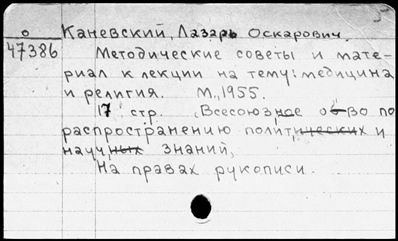 о Каневский, Лазарь Оскарович.
47386 Методические советы и мате-
риал к лекции на тему: медицина
и религия. М., 1955.
17 стр. Всесоюзное о-во по
распространению политических и
научных знаний,
На правах рукописи.